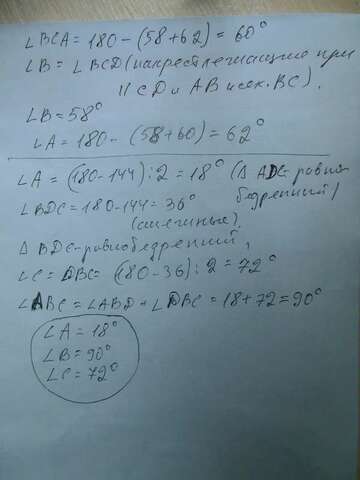 ∠BCA = 180 - (58+62) = 60°
∠B = ∠BCD (накрестлежащие при
|| CD и AB и сек. BC).
∠B = 58°
∠A = 180 - (58+60) = 62°
∠A = (180-144):2 = 18° (△ ADC-равно-
бедренный)
∠BDC = 180-144 = 36°
(смежные).
△ BDC-равнобедренный,
∠C = DBC = (180-36):2 = 72°
∠ABC = ∠ABD + ∠DBC = 18+72 = 90°
∠A = 18°
∠B = 90°
∠C = 72°